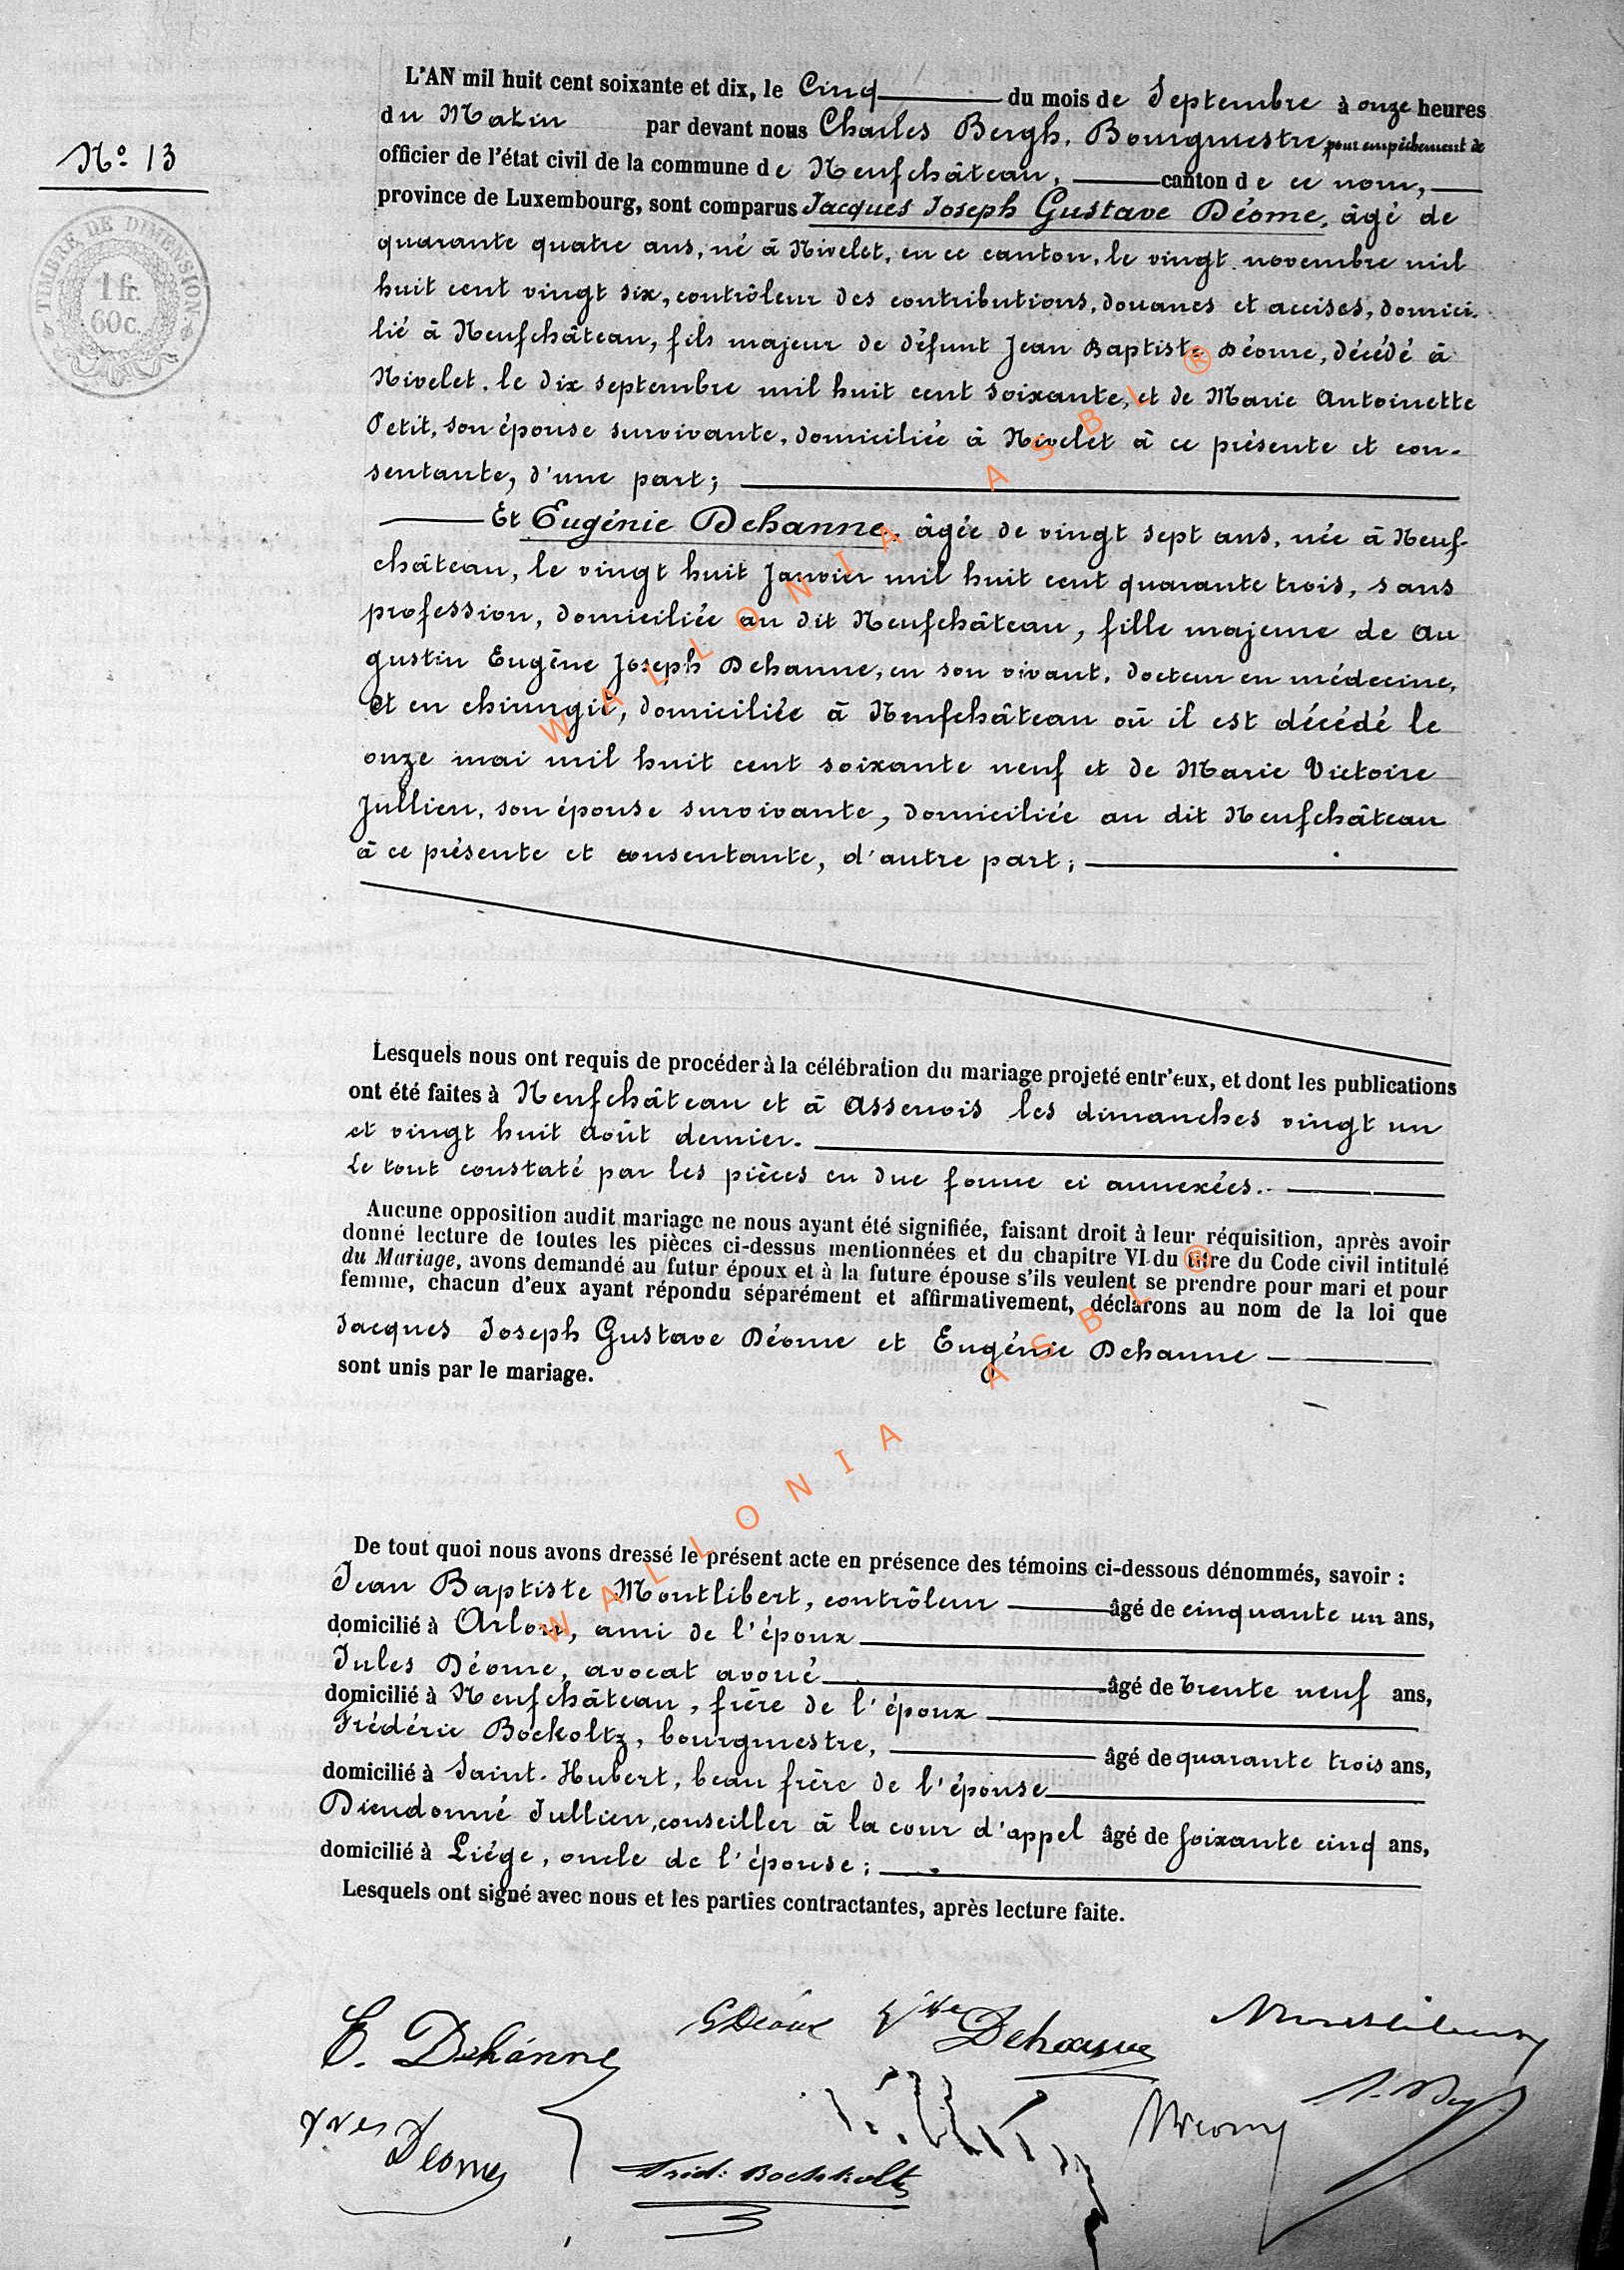 L'AN mil huit cent soixante et dix, le Cinq du mois de Septembre à onze heures
du Matin par devant nous Charles Bergh, Bourgmestre, pour empêchement de
N° 13
officier de l'état civil de la commune de Neufchâteau, canton de ce nom,
province de Luxembourg, sont comparus Jacques Joseph Gustave Déome, âgé de
TIMBRE DE DIMENSION
1 fr.
60 c.
quarante quatre ans, né à Nivelet, en ce canton, le vingt novembre mil
huit cent vingt six, contrôleur des contributions, douanes et accises, domici-
lié à Neufchâteau, fils majeur de défunt Jean Baptiste Déome, décédé à
Nivelet, le dix septembre mil huit cent soixante, et de Marie Antoinette
Petit, son épouse survivante, domiciliée à Nivelet à ce présente et con-
sentante, d'une part;
Et Eugénie Dehanne, âgée de vingt sept ans, née à Neuf-
château, le vingt huit Janvier mil huit cent quarante trois, sans
profession, domiciliée au dit Neufchâteau, fille majeure de Au
gustin Eugène Joseph Dehanne, en son vivant, docteur en médecine,
et en chirurgie, domiciliée à Neufchâteau où il est décédé le
onze mai mil huit cent soixante neuf et de Marie Victoire
Jullien, son épouse survivante, domiciliée au dit Neufchâteau
à ce présente et consentante, d'autre part;
Lesquels nous ont requis de procéder à la célébration du mariage projeté entr'eux, et dont les publications
ont été faites à Neufchâteau et à Assenois les dimanches vingt un
et vingt huit Août dernier.
Le tout constaté par les pièces en due forme ci annexées.
Aucune opposition audit mariage ne nous ayant été signifiée, faisant droit à leur réquisition, après avoir
donné lecture de toutes les pièces ci-dessus mentionnées et du chapitre VI du titre du Code civil intitulé
du Mariage, avons demandé au futur époux et à la future épouse s'ils veulent se prendre pour mari et pour
femme, chacun d'eux ayant répondu séparément et affirmativement, déclarons au nom de la loi que
Jacques Joseph Gustave Déome et Eugénie Dehanne
sont unis par le mariage.
WALLONIA ASBL ®
WALLONIA ASBL ®
De tout quoi nous avons dressé le présent acte en présence des témoins ci-dessous dénommés, savoir :
Jean Baptiste Montlibert, contrôleur âgé de cinquante un ans,
domicilié à Arlon, ami de l'époux
Jules Déome, avocat avoué âgé de trente neuf ans,
domicilié à Neufchâteau, frère de l'époux
Frédéric Bockoltz, bourgmestre, âgé de quarante trois ans,
domicilié à Saint-Hubert, beau frère de l'épouse
Dieudonné Jullien, conseiller à la cour d'appel âgé de soixante cinq ans,
domicilié à Liége, oncle de l'épouse;
Lesquels ont signé avec nous et les parties contractantes, après lecture faite.
E. Dehanne
G Déome
Dehanne
Deome
Fréd: Bockholtz